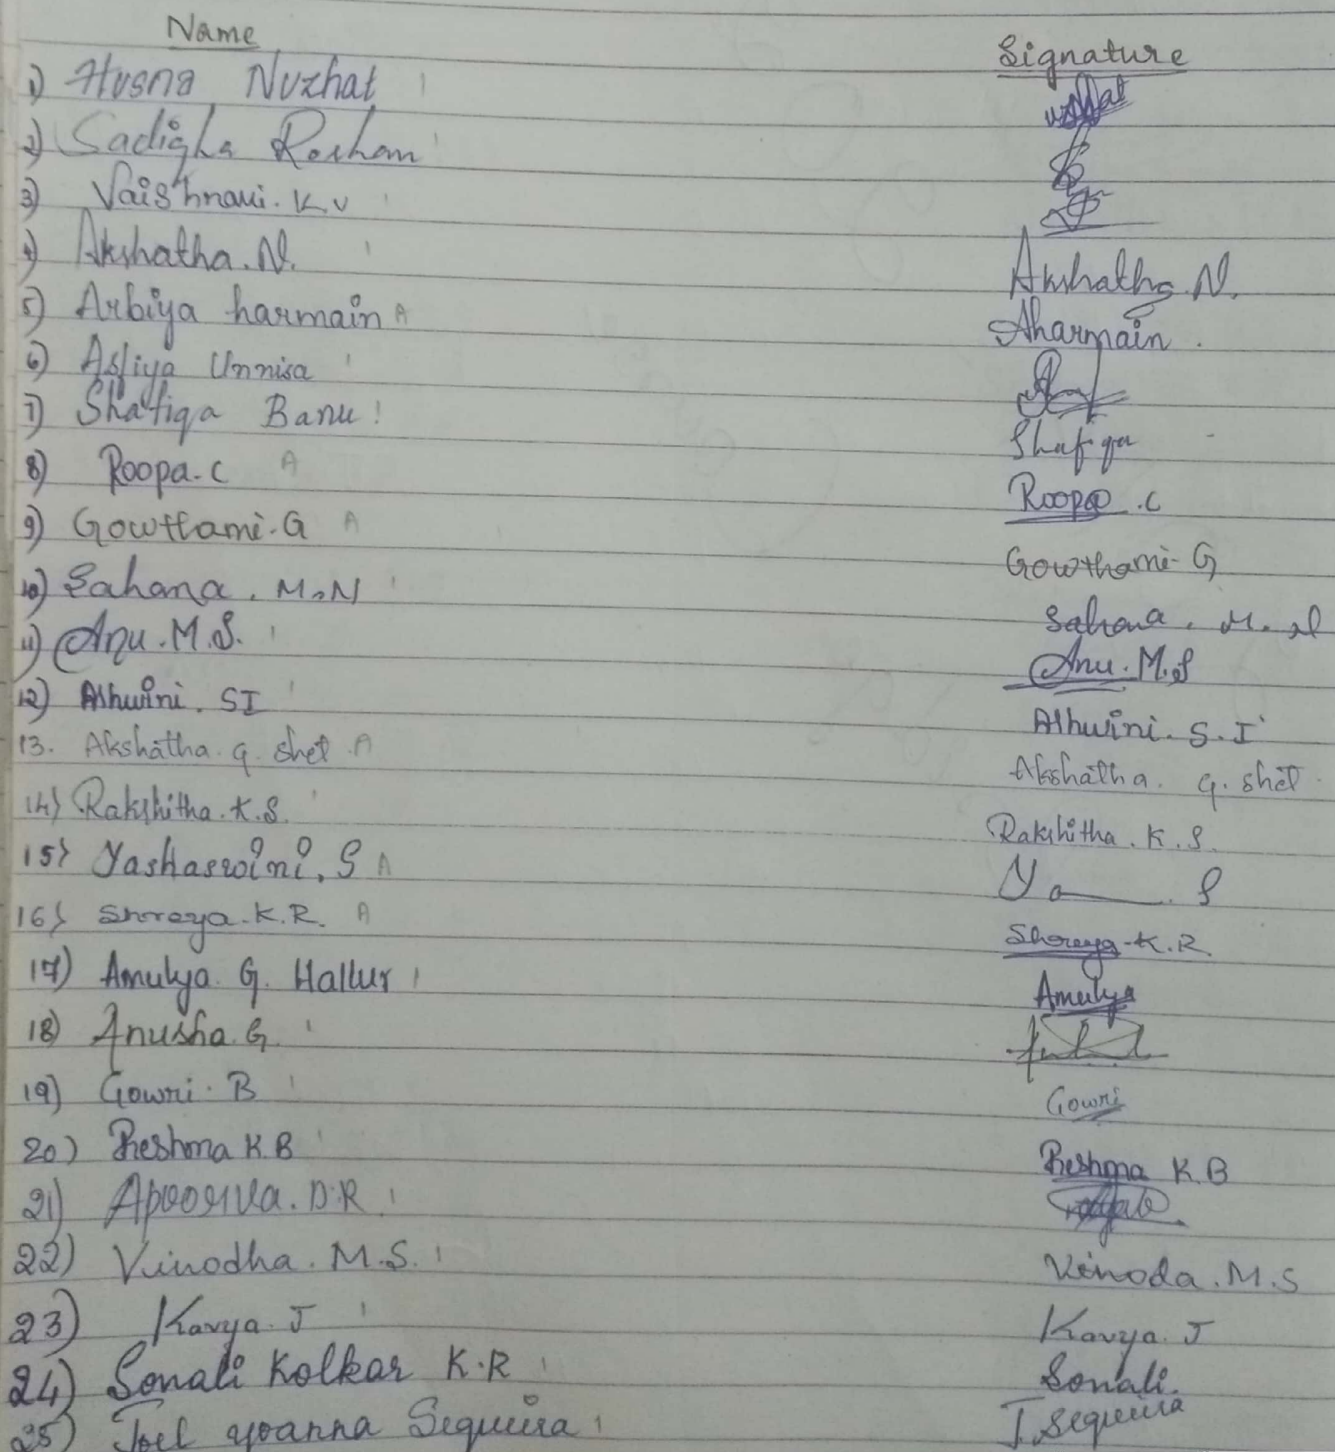 Name Signature
1) Husna Nuzhat
2) Sadiqha Roshan
3) Vaishnavi. K V
4) Akshatha. N. Akshatha. N.
5) Arbiya harmain A Aharmain.
6) Asfiya Unnisa
7) Shafiqa Banu Shafiqa
8) Roopa. C A Roopa .C
9) Gowthami. G A Gowthami- G
10) Sahana. M.N Sahana. M. N
11) Anu. M.S. Anu. M.S
12) Ashwini. SI Ashwini. S. I
13. Akshatha. g. shet A Akshatha. g. shet
14) Rakshitha. K.S. Rakshitha. K. S.
15) Yashaswini. S A
16) Shreya. K.R. A Shreya-K.R.
17) Amulya. G. Hallur Amulya
18) Anusha. G.
19) Gowri. B Gowri
20) Reshma K.B Reshma K.B
21) Apoorva. D.R.
22) Vinodha. M.S. Vinoda. M.S
23) Kavya. J Kavya. J
24) Sonali Kolkar K.R Sonali.
25) Joel yoanna Sequeira J. Sequeira